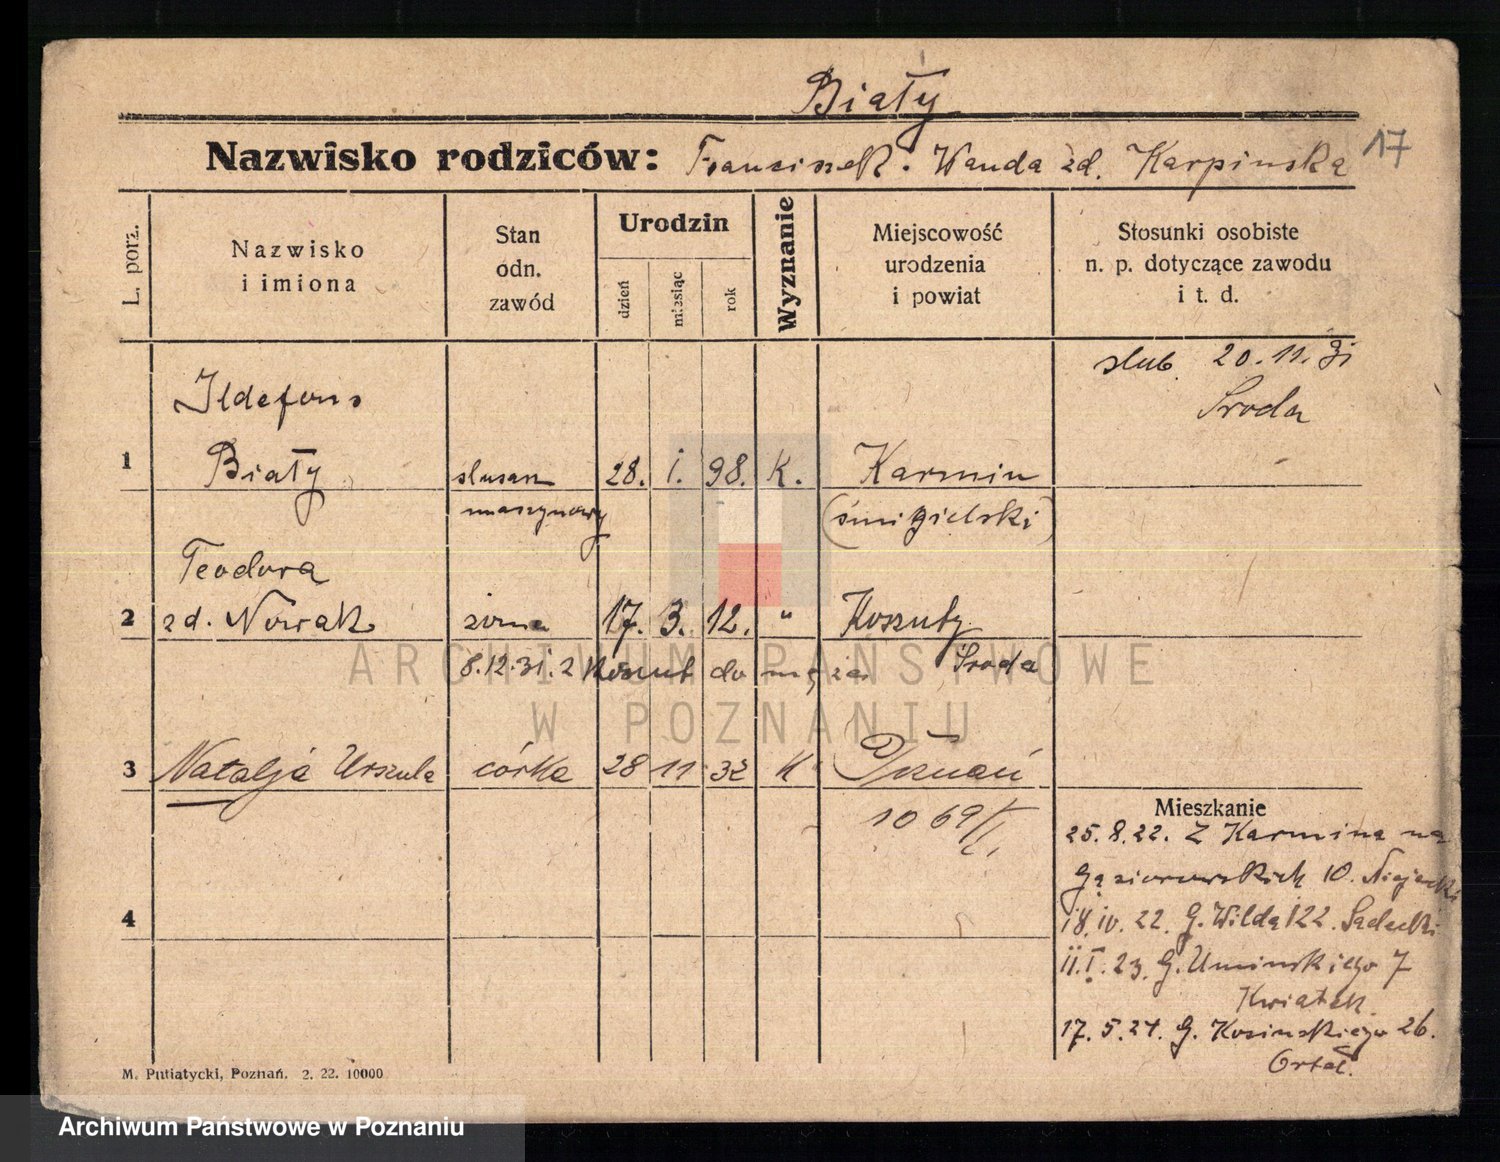 Biały
Nazwisko rodziców: Franciszek. Wanda zd. Karpinska 17
L. porz.
Nazwisko
i imiona
Stan
odn.
zawód
Urodzin
dzień
miesiąc
rok
Wyznanie
Miejscowość
urodzenia
i powiat
Stosunki osobiste
n. p. dotyczące zawodu
i t. d.
slub. 20. 11. 31
Sroda
Ildefons
1 Biały slusarz 28. 1. 98. K. Karmin
maszynowy (smigielski)
Teodora
2 zd. Nowak zona 17. 3. 12. " Koszuty
8.12.31. z Koszut do męża Sroda
ARCHIWUM PAŃSTWOWE
W POZNANIU
3 Natalja Urszula córka 28 11 32 K Poznań
1069/
4
Mieszkanie
25. 8. 22. Z Karmina na
Gąsiorowskich 10.
18. 10. 22. G. Wilda 122. Sadecki
11. 1. 23. G. Uminskiego 7
Kwiatek.
17. 5. 24. G. Kosinskiego 26.
M. Putiatycki, Poznań. 2. 22. 10000
Archiwum Państwowe w Poznaniu